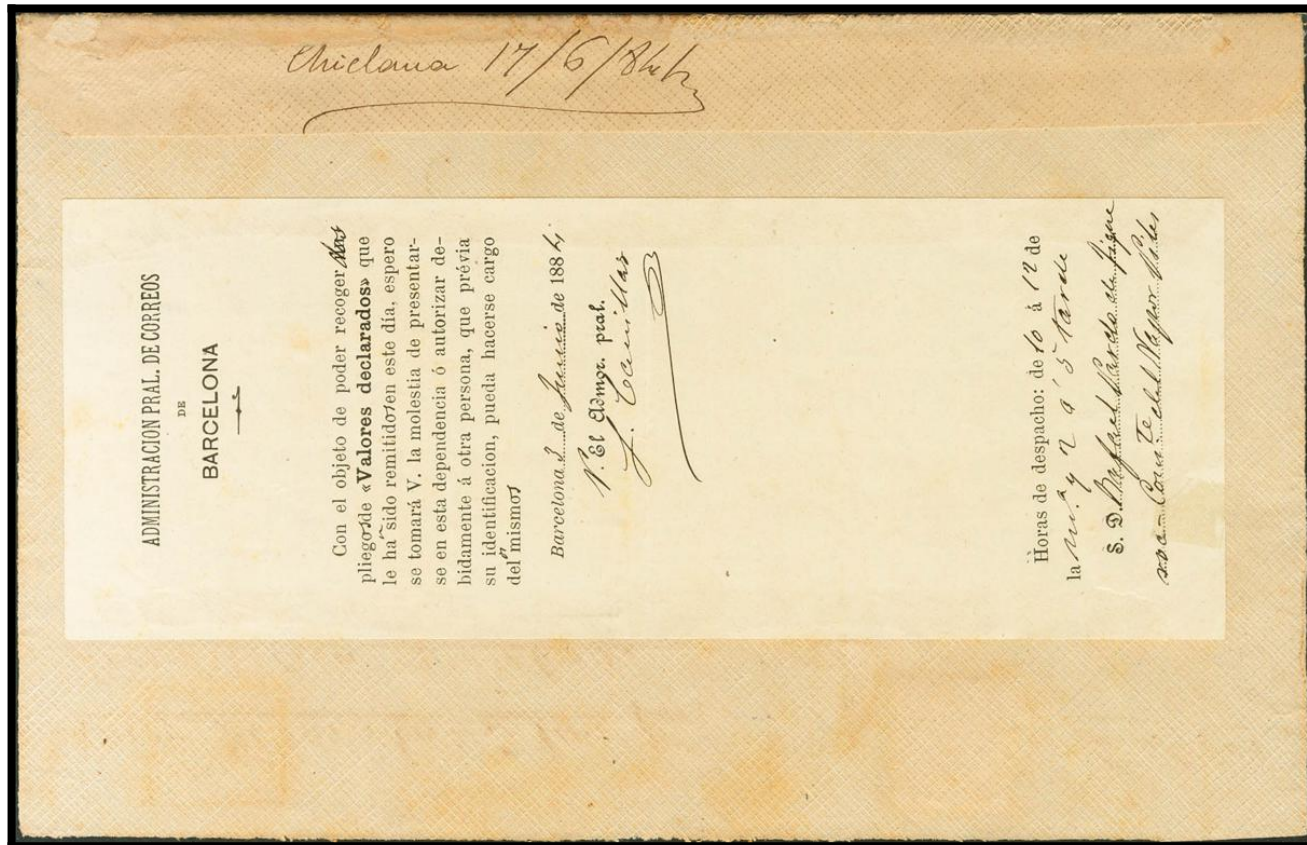 Chiclana 17/6/84
ADMINISTRACION PRAL. DE CORREOS
DE
BARCELONA
Con el objeto de poder recoger dos
pliegos de «Valores declarados» que
le han sido remitidos en este día, espero
se tomará V. la molestia de presentar-
se en esta dependencia ó autorizar de-
bidamente á otra persona, que prévia
su identificacion, pueda hacerse cargo
del mismos
Barcelona 2 de Junio de 1884
P. El Admor. pral.
Horas de despacho: de 10 á 12 de
la mª y 2 á 5 tarde
S. D. Rafael Pardo de Figue
roa Comte del Vapor